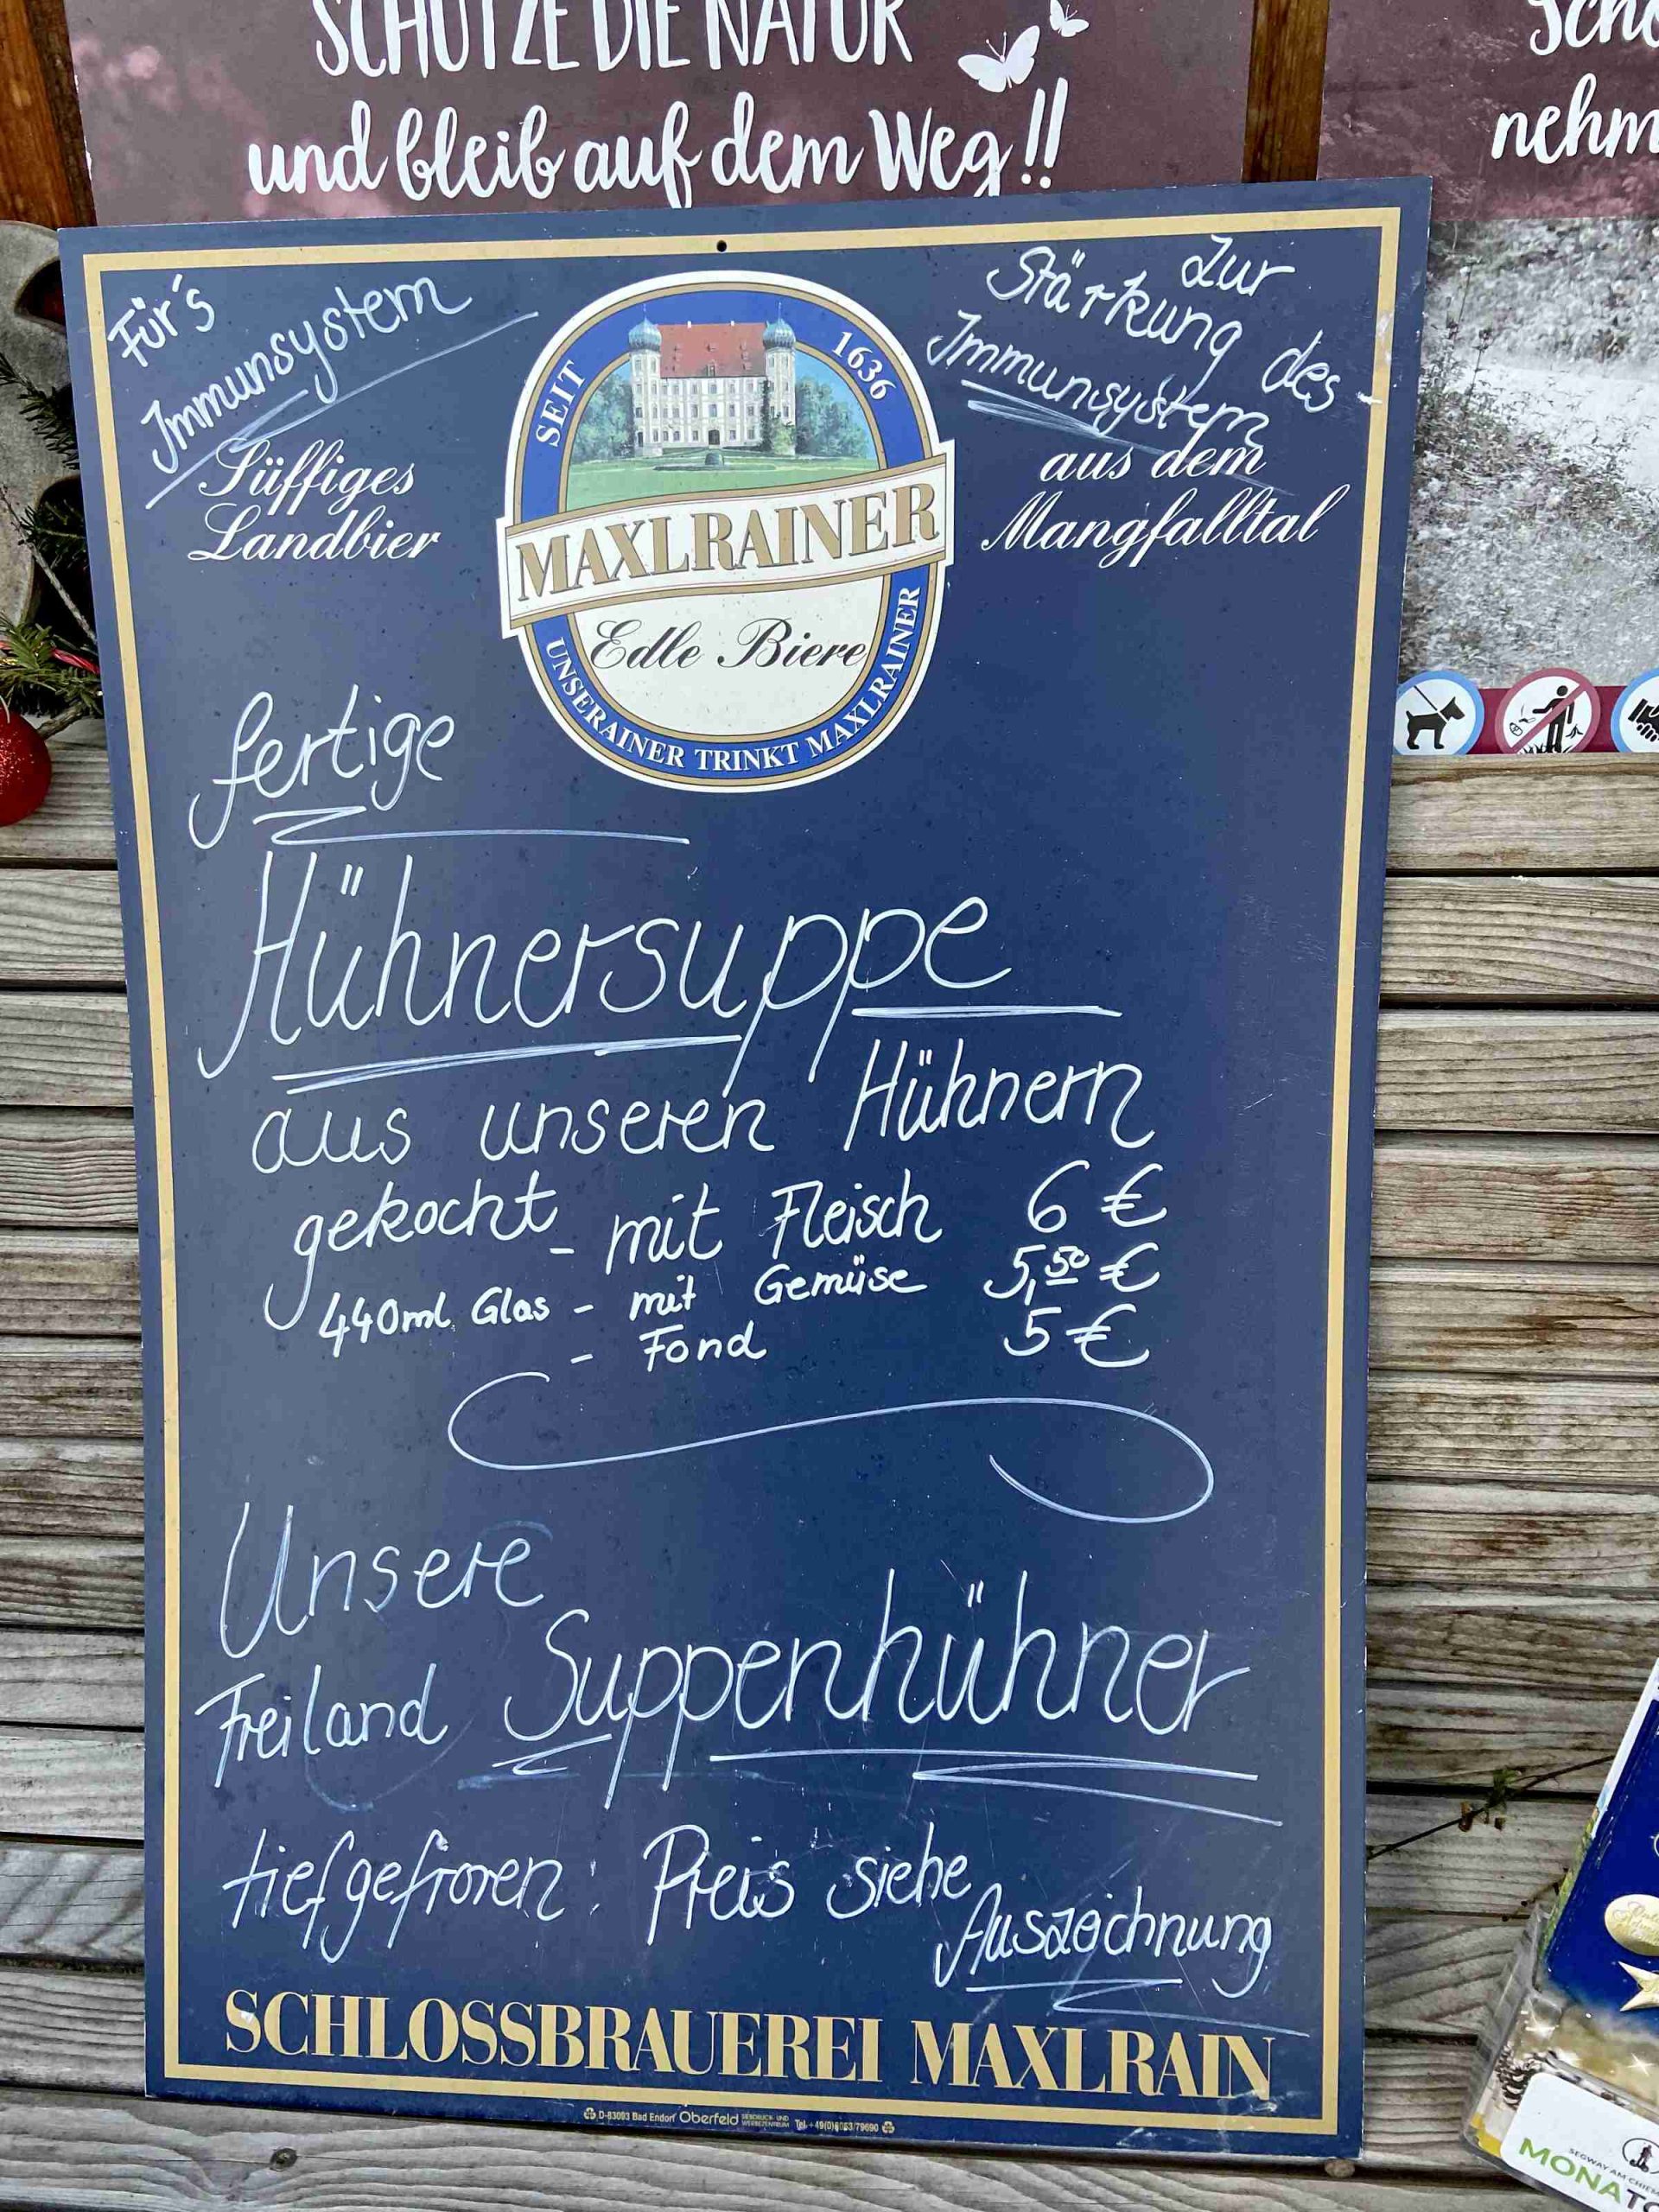 SCHÜTZE DIE NATUR
und bleib auf dem Weg!!
nehm
Für's
Immunsystem
Zur
Stärkung des
Immunsystem
Süffiges
Landbier
aus dem
Mangfalltal
SEIT 1636
MAXLRAINER
Edle Biere
UNSERAINER TRINKT MAXLRAINER
fertige
Hühnersuppe
aus unseren Hühnern
gekocht - mit Fleisch 6 €
440ml Glas - mit Gemüse 5,50 €
- Fond 5 €
Unsere
Freiland Suppenhühner
tiefgefroren: Preis siehe
Auszeichnung
SCHLOSSBRAUEREI MAXLRAIN
D-83093 Bad Endorf Oberfeld SIEBDRUCK- UND WERBEZENTRUM Tel. +49(0)8053/79690
SEGWAY AM CHIE
MONAT